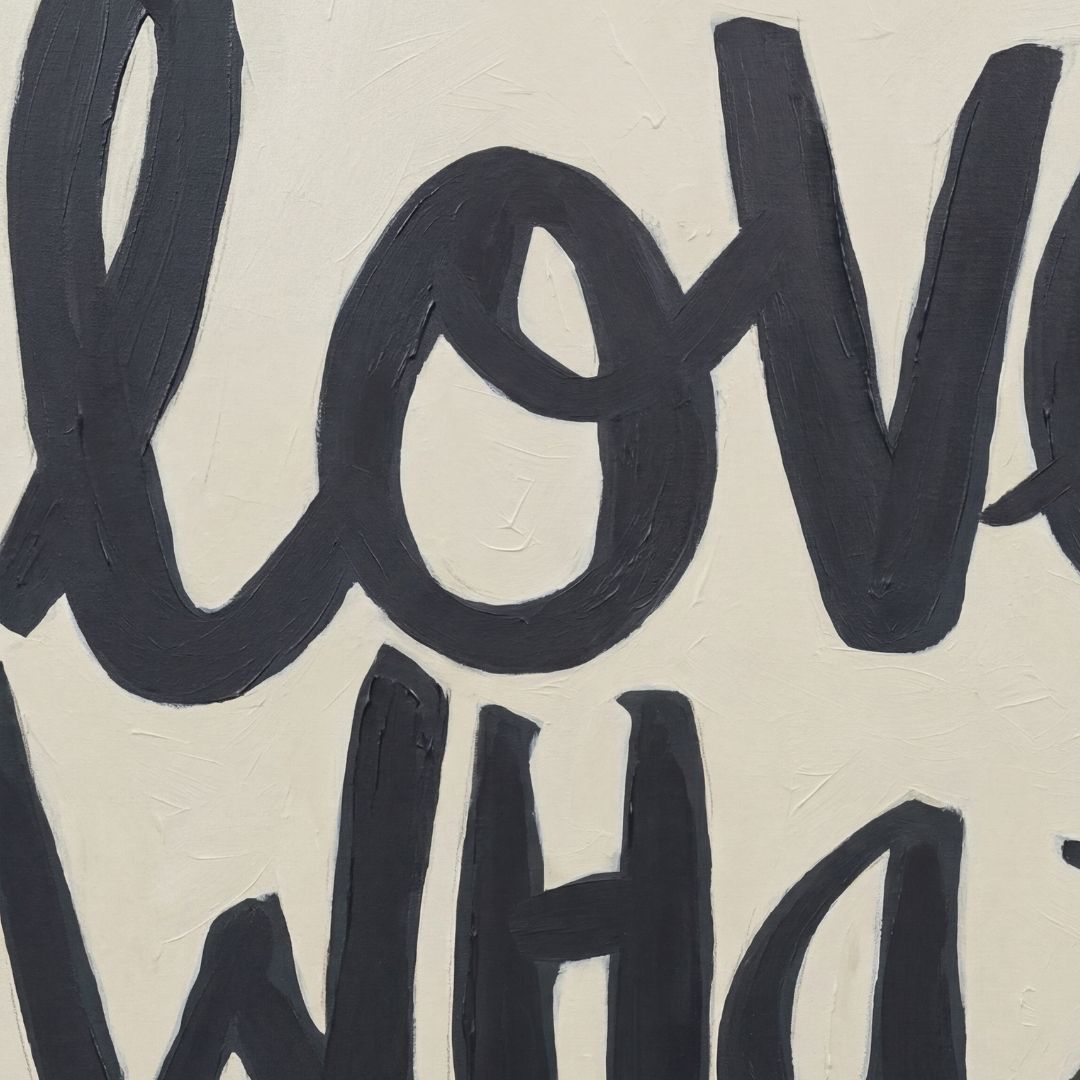 love
WHAT